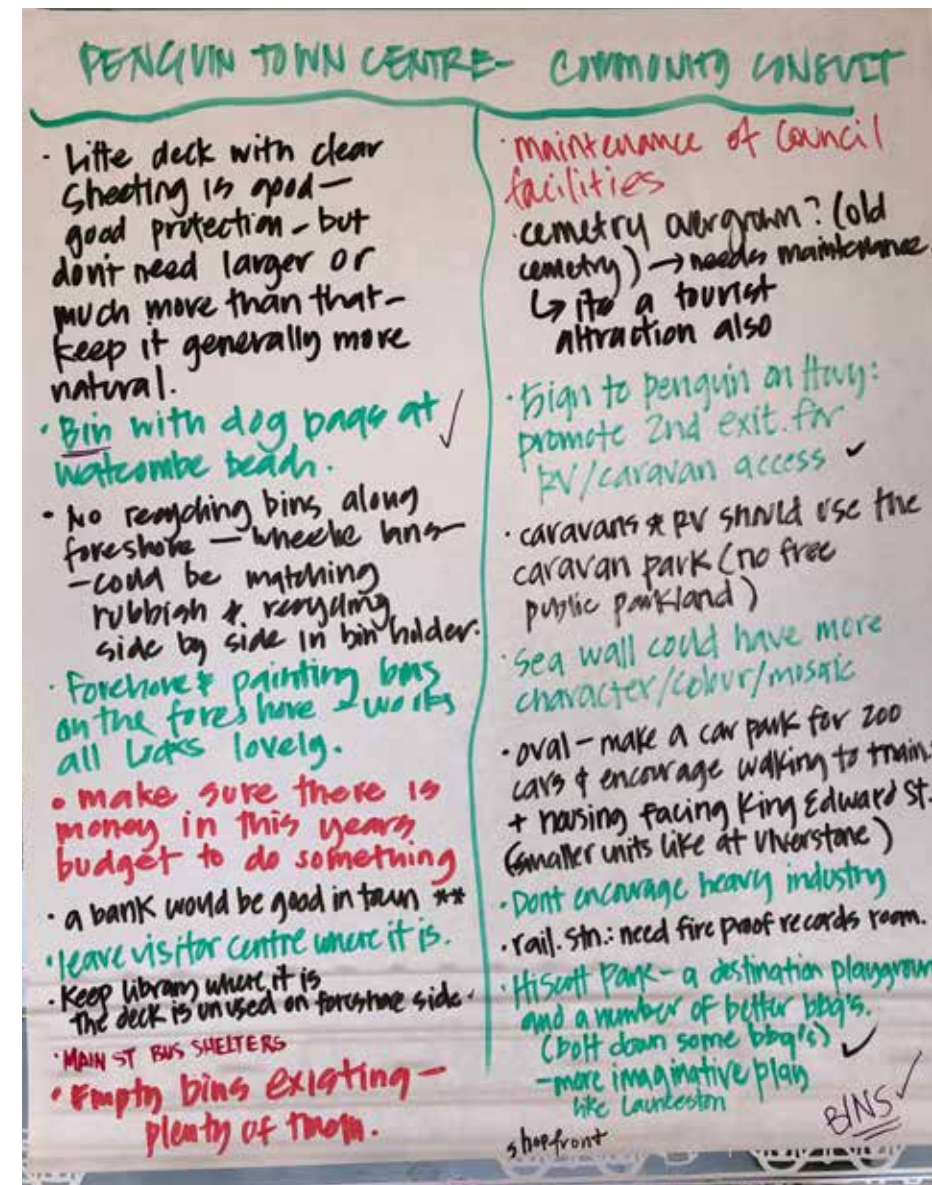 PENGUIN TOWN CENTRE - COMMUNITY CONSULT
· Little deck with clear
sheeting is good -
good protection - but
don't need larger or
much more than that -
keep it generally more
natural.
· Bin with dog bags at ✓
Watcombe beach.
· No recycling bins along
foreshore - wheelie bins -
- could be matching
rubbish & recycling
side by side in bin holder.
· Foreshore & painting
on the foreshore - works
all looks lovely.
· make sure there is
money in this years
budget to do something
· a bank would be good in town **
· leave visitor centre where it is.
· Keep library where it is
The deck is unused on foreshore side.
· MAIN ST BUS SHELTERS
· Empty bins existing -
plenty of them.
· maintenance of Council
facilities
· cemetry overgrown? (old
cemetry) → needs maintenance.
↳ its a tourist
attraction also
· Sign to penguin on Hwy:
promote 2nd exit for
RV/caravan access ✓
· caravans & RV should use the
caravan park (no free
public parkland)
· Sea wall could have more
character/colour/mosaic
· oval - make a car park for 200
cars & encourage walking to train.
+ housing facing King Edward St.
(smaller units like at Ulverstone)
· Dont encourage heavy industry
· rail. stn.: need fire proof records room.
· Hiscutt Park - a destination playgroun
and a number of better bbq's.
(bolt down some bbq's) ✓
- more imaginative play
like Launceston
BINS ✓
shopfront